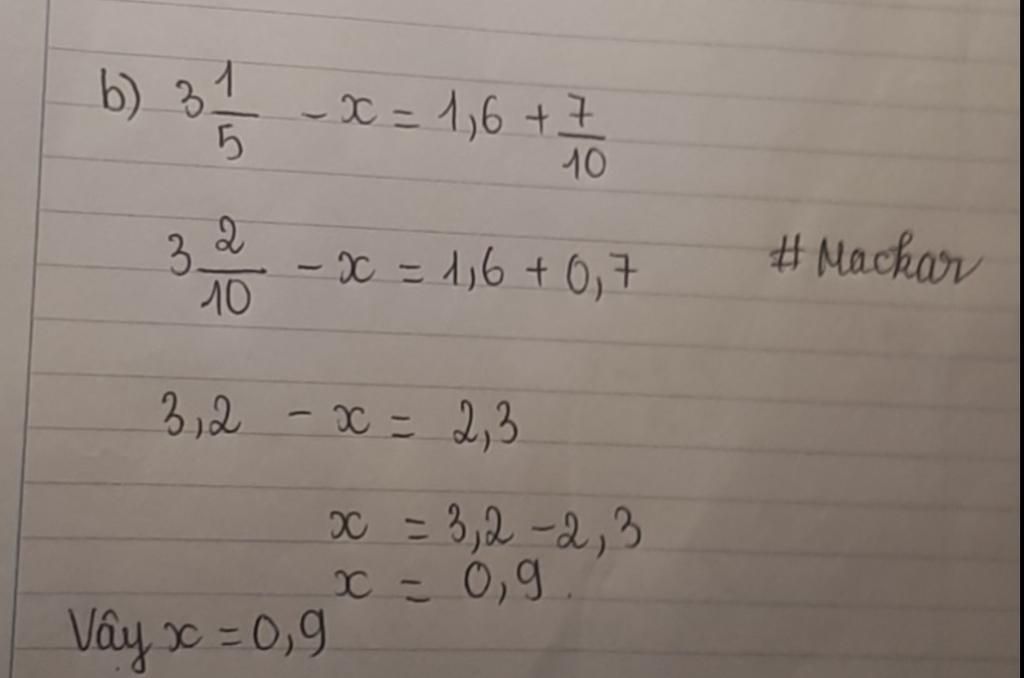 b) 3 1/5 - x = 1,6 + 7/10
3 2/10 - x = 1,6 + 0,7 # Mackar
3,2 - x = 2,3
x = 3,2 - 2,3
x = 0,9
Vây x = 0,9